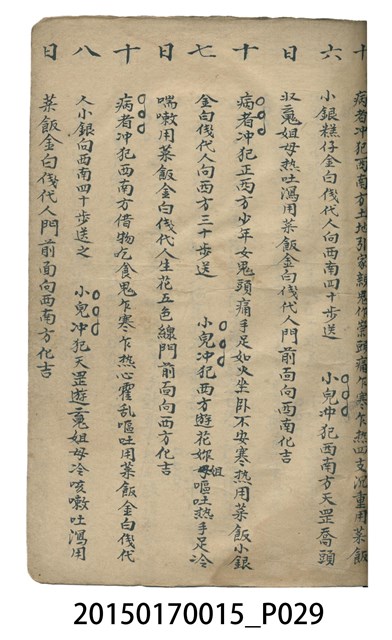 十 病者冲犯西南方土地引家親思作祟頭痛乍寒乍热四支沉重用菜飯
六 小銀糕仔金白伐代人向西南四十步送 小兒冲犯西南方天罡喬頭
日 奴䰟姐母热吐瀉用菜飯金白伐代人門前面向西南化吉
十 病者冲犯正西方少年女鬼頭痛手足如火坐卧不安寒热用菜飯小銀
七 金白伐代人向西方三十步送 小兒冲犯西方遊花婭姐嘔吐热手足冷
日 喘嗽用菜飯金白伐代人生花五色線門前面向西方化吉
十 病者冲犯西南方借物吃食鬼乍寒乍热心霍乱嘔吐用菜飯金白伐代
八 人小銀向西南四十步送之 小兒冲犯天罡遊䰟姐母冷咳嗽吐瀉用
日 菜飯金白伐代人門前面向西南方化吉
20150170015_P029